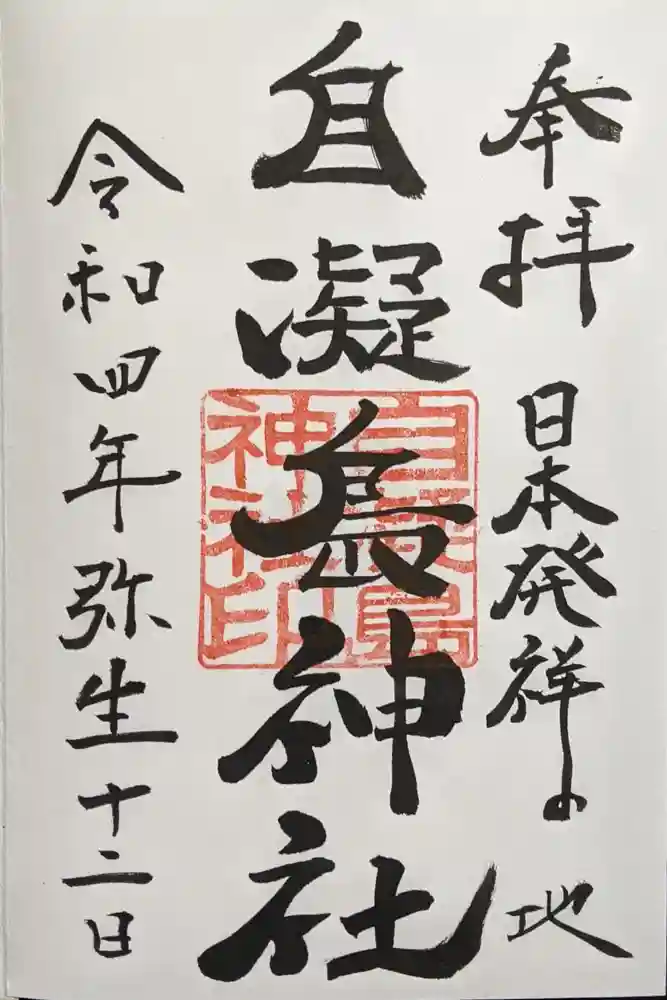 奉拝 日本発祥の地
自凝島神社
自凝島神社印
令和四年弥生十二日